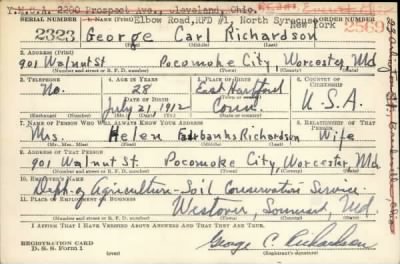 Y.M.C.A. 2200 Prospect Ave., Cleveland, Ohio.
Elbow Road, RFD #1, North Syracuse
New York
SERIAL NUMBER 1. NAME (Print) ORDER NUMBER
2323 George Carl Richardson 2569
(First) (Middle) (Last)
2. ADDRESS (Print)
901 Walnut St Pocomoke City, Worcester, Md
(Number and street or R. F. D. number) (Town) (County) (State)
3. TELEPHONE 4. AGE IN YEARS 5. PLACE OF BIRTH 6. COUNTRY OF CITIZENSHIP
No. 28 East Hartford
DATE OF BIRTH
July 21, 1912 Conn. U.S.A.
(Exchange) (Number) (Mo.) (Day) (Yr.) (State or country)
7. NAME OF PERSON WHO WILL ALWAYS KNOW YOUR ADDRESS 8. RELATIONSHIP OF THAT PERSON
Mrs. Helen Fairbanks Richardson Wife
(Mr., Mrs., Miss) (First) (Middle) (Last)
9. ADDRESS OF THAT PERSON
901 Walnut St. Pocomoke City, Worcester, Md.
(Number and street or R. F. D. number) (Town) (County) (State)
10. EMPLOYER'S NAME
Dept. of Agriculture-Soil Conservation Service.
11. PLACE OF EMPLOYMENT OR BUSINESS
Westover, Somerset, Md.
(Number and street or R. F. D. number) (Town) (County) (State)
I AFFIRM THAT I HAVE VERIFIED ABOVE ANSWERS AND THAT THEY ARE TRUE.
REGISTRATION CARD
D. S. S. Form 1
George C. Richardson
(Registrant's signature)